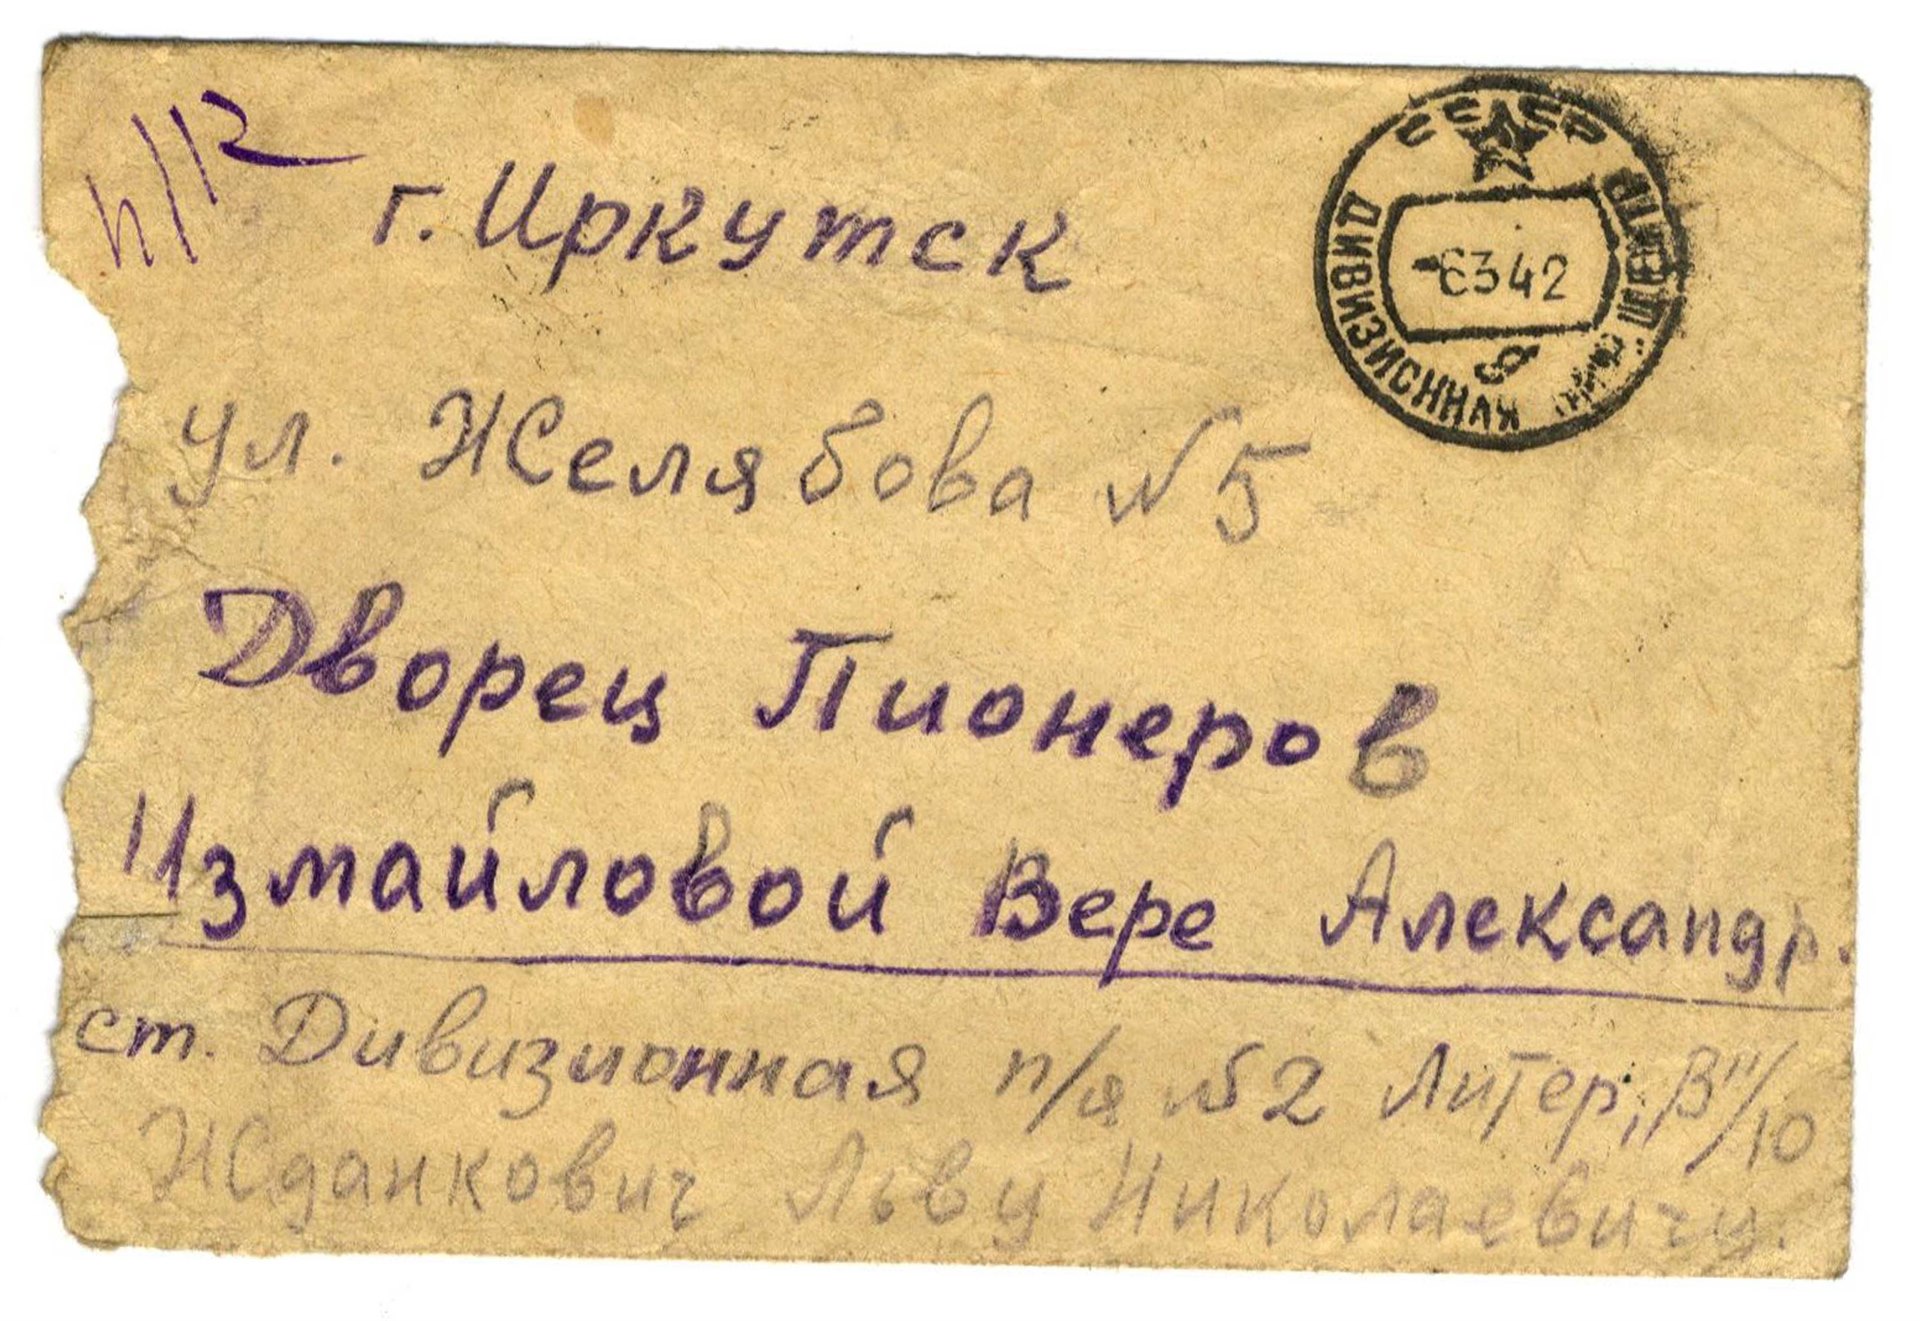 г. Иркутск
СССР
ДИВИЗИОННАЯ
-6 3 42
ул. Желябова №5
Дворец Пионеров
Измайловой Вере Александр.
ст. Дивизионная п/я №2 Литер „В"/10
Жданкович Льву Николаевичу.